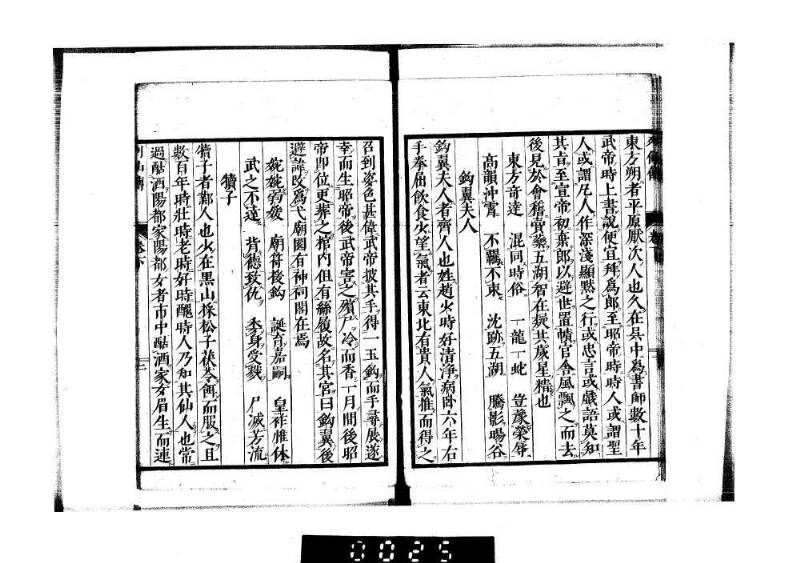 列仙傳 卷下
東方朔者平原厭次人也久在吳中為書師數十年
武帝時上書說便宜拜為郎至昭帝時時人或謂聖
人或謂凡人作深淺顯黙之行或忠言或戲語莫知
其旨至宣帝初棄郎以避世置幘官舍風飄之而去
後見於會稽賣藥五湖智者疑其歲星精也
東方奇達 混同時俗 一龍一蛇 豈豫榮辱
高韻沖霄 不羈不束 沈跡五湖 騰影暘谷
鈎翼夫人
鈎翼夫人者齊人也姓趙少時好清淨病卧六年右
手拳屈飲食少望氣者云東北有貴人氣推而得之
召到姿色甚偉武帝披其手得一玉鈎而手尋展遂
幸而生昭帝後武帝害之殯尸不冷而香一月間後昭
帝即位更葬之棺內但有絲履故名其宮曰鈎翼後
避諱改為弋廟闥有神祠閣在焉
婉婉弱媛 廟符授鈎 誕育嘉嗣 皇祚惟休
武之不達 背德致仇 委身受戮 尸滅芳流
犢子
犢子者鄴人也少在黑山採松子茯苓餌而服之且
數百年時壯時老時好時醜時人乃知其仙人也常
過酤酒陽都家陽都女者市中酤酒家女眉生而連
列仙傳 卷下 三
0025